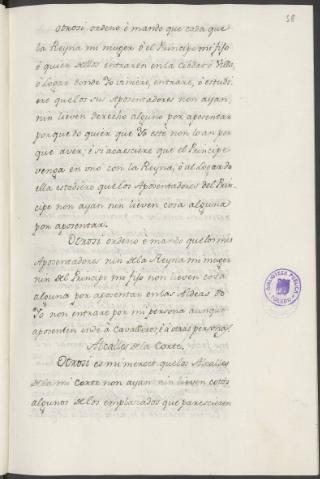 58
Otrosi ordeno è mando que cada que
la Reyna mi muger ò el Principe mi fijo
ò quien dellos entraren en la Cibdat ò Villa,
ò Logar donde Yo viniere, entrare, ò estudi-
ere que los sus Aposentadores non ayan,
nin lieven derecho alguno por aposentar
porque do quier que Yo esté non lo an por
que aver; è si acaesciere que el Principe
venga en uno con la Reyna, ò al Logar do
ella estodiere que los Aposentadores del Prin-
cipe non ayan nin lieven cosa alguna
por aposentar.
Otrosi ordeno è mando que los mis
Aposentadores nin de la Reyna mi muger
nin del Principe mi fijo non lieven cosa
alguna por aposentar en las Aldeas do
Yo non entrare por mi persona aunque
aposenten ende à Cavalleros, è à otras personas.
Alcalles de la Corte.
Otrosi es mi mercet que los Alcalles
de la mi Corte non ayan nin lieven cotos
algunos de los emplazados que parescieren
BIBLIOTECA PUBLICA
TOLEDO